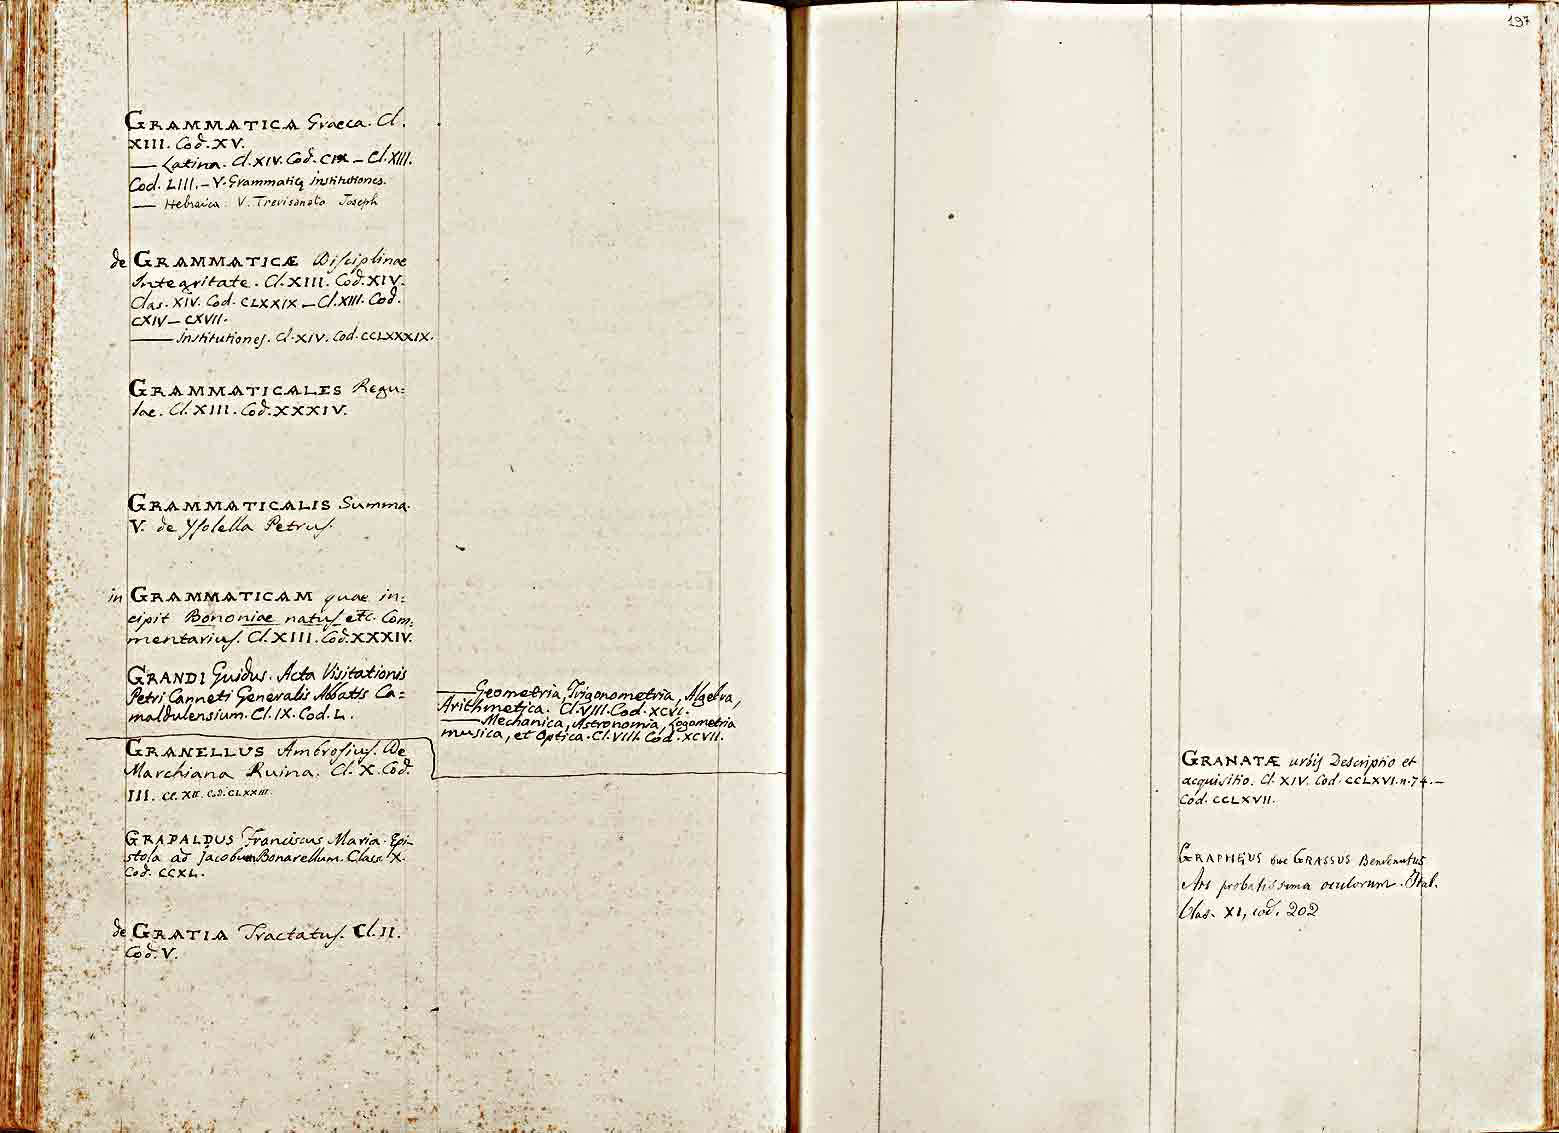 GRAMMATICA Graeca. Cl.
XIII. Cod. XV.
— Latina. Cl. XIV. Cod. CIX — Cl. XIII.
Cod. LIII. — V. Grammaticę institutiones.
— Hebraica. V. Trevisanato Joseph
de GRAMMATICÆ Disciplinae
Integritate. Cl. XIII. Cod. XIV.
Clas. XIV. Cod. CLXXIX — Cl. XIII. Cod.
CXIV — CXVII.
— institutiones. Cl. XIV. Cod. CCLXXXIX.
GRAMMATICALES Regu=
lae. Cl. XIII. Cod. XXXIV.
GRAMMATICALIS Summa.
V. de Ysolella Petrus.
in GRAMMATICAM quae in=
cipit Bononiae natus etc. Com=
mentarius. Cl. XIII. Cod. XXXIV.
GRANDI Guidus. Acta Visitationis
Petri Canneti Generalis Abbatis Ca=
maldulensium. Cl. IX. Cod. L.
— Geometria, Trigonometria, Algebra,
Arithmetica. Cl. VIII. Cod. XCVI.
— Mechanica, Astronomia, Logometria
musica, et Optica. Cl. VIII. Cod. XCVII.
GRANELLUS Ambrosius. De
Marchiana Ruina. Cl. X. Cod.
III. Cl. XII. Cod. CLXXIII.
GRAPALDUS Franciscus Maria. Epi-
stola ad Jacobum Bonarellum. Class. X.
Cod. CCXL.
de GRATIA Tractatus. Cl. II.
Cod. V.
197
GRANATÆ urbis Descriptio et
acquisitio. Cl. XIV. Cod. CCLXVI. n. 74. —
Cod. CCLXVII.
GRAPHEUS sive GRASSUS Benvenutus
Ars probatissima oculorum. Ital.
Clas. XI, cod. 202